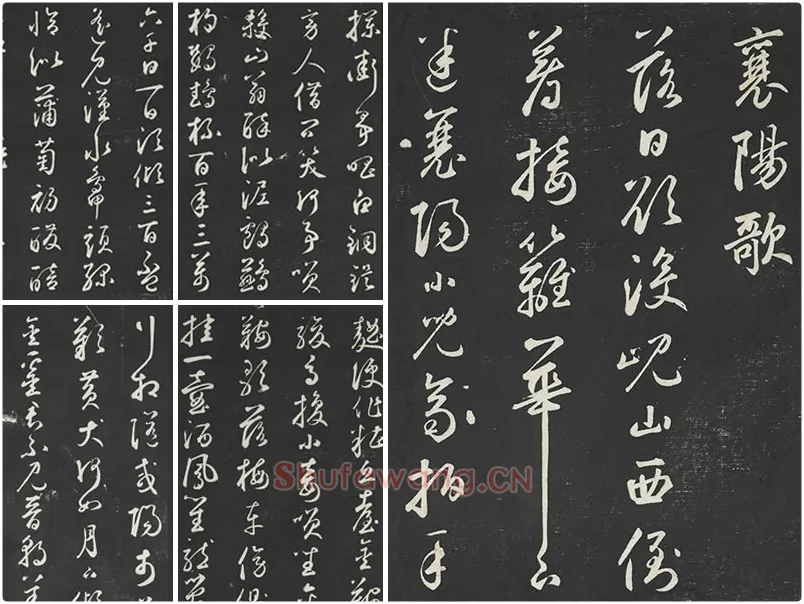 襄陽歌
落日欲没峴山西倒
着接籬華下
迷襄陽小兒齊拍手
攔街爭唱白銅鞮
旁人借問笑何事笑
殺山翁醉似泥鸕鷀
杓鸚鵡杯百年三萬
六千日一日須傾三百杯
遙見漢水鴨頭綠
恰似蒲萄初醱醅
麴便作糟丘臺金鞍
駿馬換小妾笑坐金
鞍歌落梅車傍側
挂一壺酒鳳笙龍管
行相催咸陽市
歎黃犬何如月下傾
金罍君不見晉朝羊
Shufawang.CN